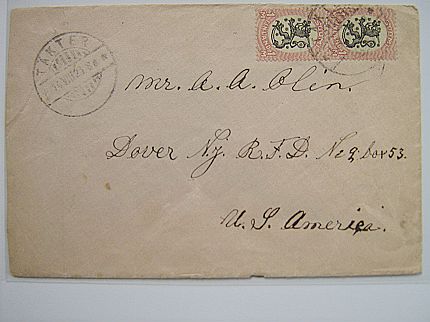 TÄKTER
Mr. A. A. Olin.
Dover N.J. R.F.D. No 2, box 53.
U. S. America.